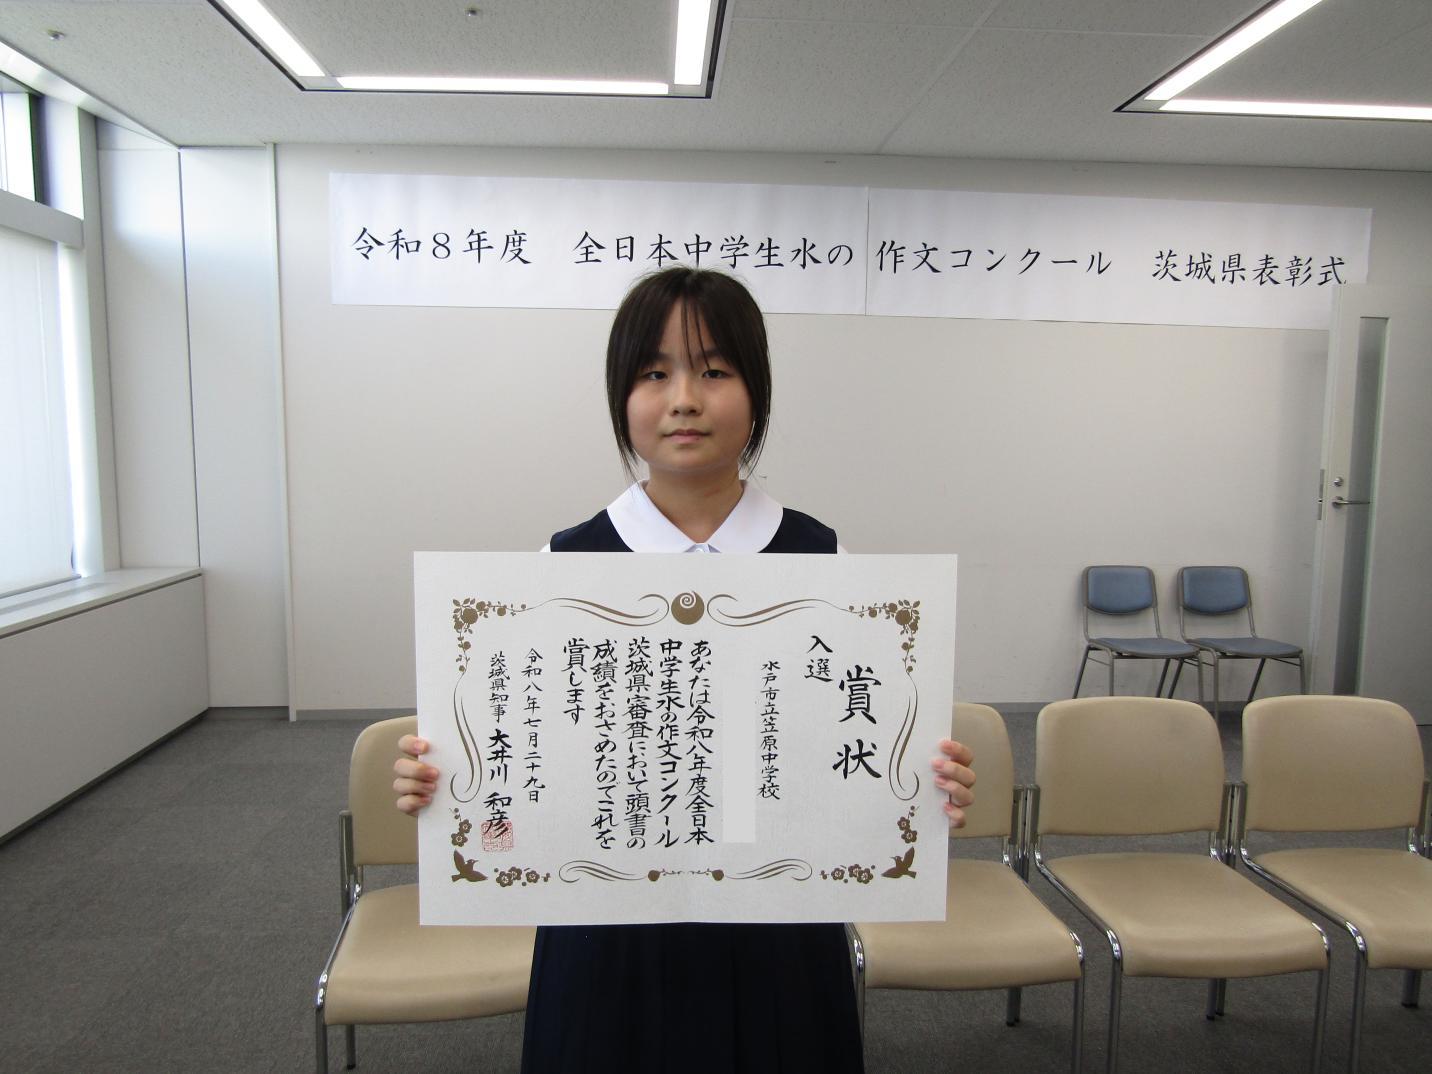 令和８年度　全日本中学生水の作文コンクール　茨城県表彰式
賞状
入選
水戸市立笠原中学校
あなたは令和八年度全日本
中学生水の作文コンクール
茨城県審査において頭書の
成績をおさめたのでこれを
賞します
令和八年七月二十九日
茨城県知事　大井川　和彦